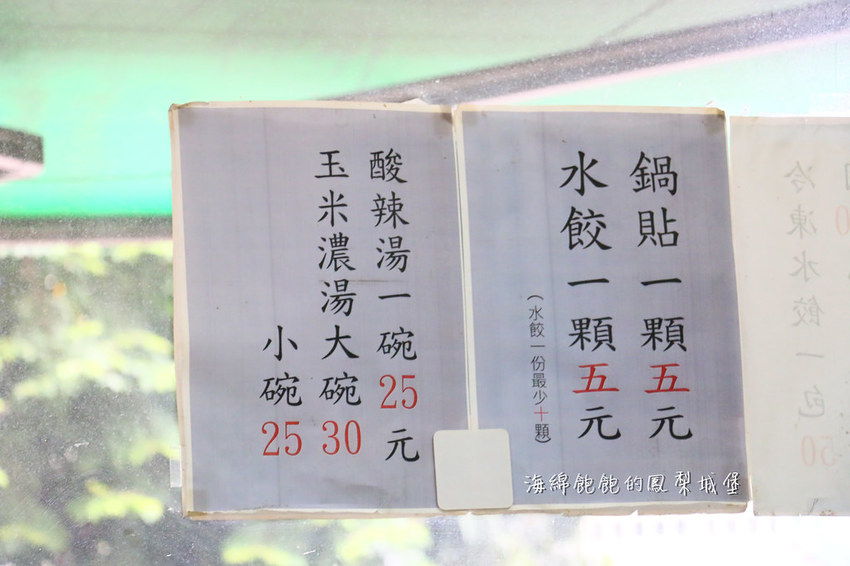 鍋貼一顆五元
水餃一顆五元
(水餃一份最少十顆)
酸辣湯一碗25元
玉米濃湯大碗30
小碗25
冷凍水餃一包
海綿飽飽的鳳梨城堡